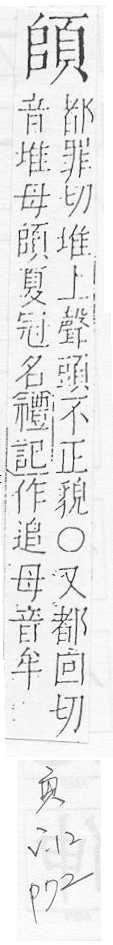 頧
都罪切堆上聲頭不正貌○又都回切
音堆母頧夏冠名禮記作追母音牟